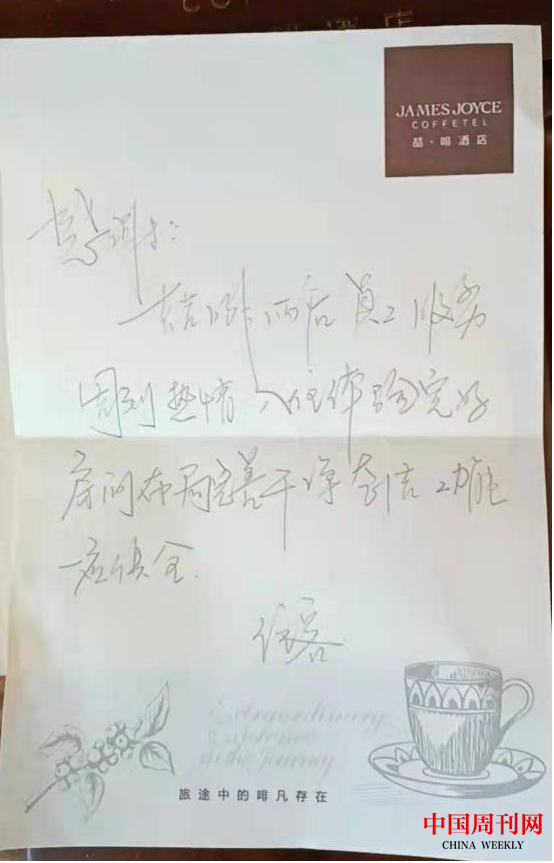 JAMES JOYCE
COFFETEL
喆·啡酒店
感谢:
喆啡酒店员工服务
周到热情 入住体验完好
房间布局完善干净整洁 功能
一应俱全.
住客
Extraordinary
Existence
in the Journey
旅途中的啡凡存在
中国周刊网
CHINA WEEKLY